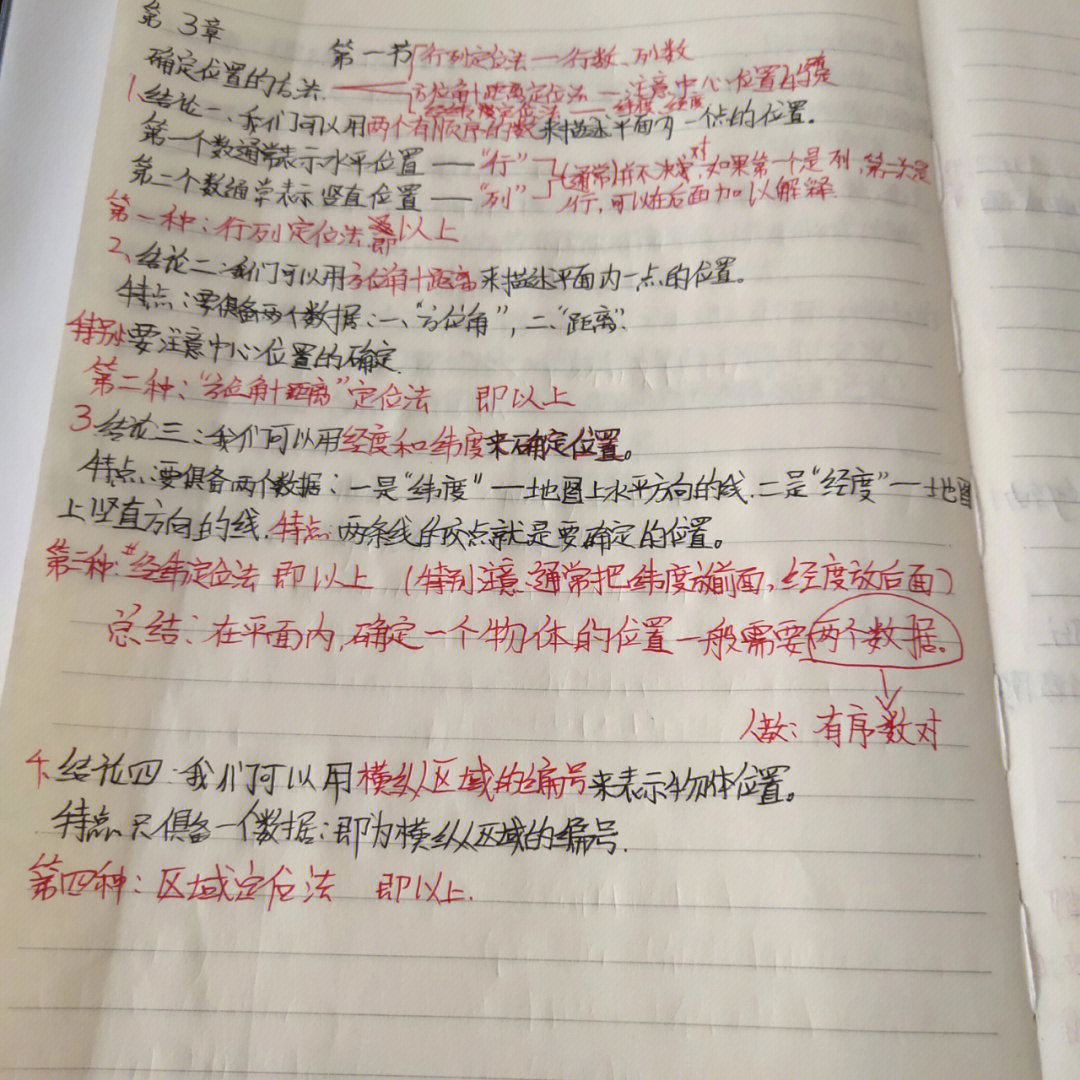 第3章
第一节 行列定位法—行数、列数
确定位置的方法 方位角+距离定位法—注意中心位置的
定位法
1、结论一、我们可以用两个有顺序的数来描述平面内一个点的位置。
第一个数通常表示水平位置——“行”
第二个数通常表示竖直位置——“列”
(通常)并不决对,如果第一个是列,第二次是
行,可以在后面加以解释.
第一种:行列定位法 即以上
2、结论二:我们可以用方位角+距离来描述平面内一点的位置。
特点:要俱备两个数据:一、“方位角”,二、“距离”.
特别要注意中心位置的确定.
第二种:“方位角+距离”定位法 即以上
3.结论三:我们可以用经度和纬度来确定位置。
特点:要俱备两个数据:一是“纬度”—地图上水平方向的线.二是“经度”—地图
上竖直方向的线.特点:两条线的交点就是要确定的位置。
第三种:经纬定位法 即以上 (特别注意:通常把纬度放前面,经度放后面)
总结:在平面内,确定一个物体的位置一般需要两个数据。
有序数对
4.结论四:我们可以用横纵区域的编号来表示物体位置。
特点:只俱备一个数据:即为横纵区域的编号.
第四种:区域定位法 即以上.